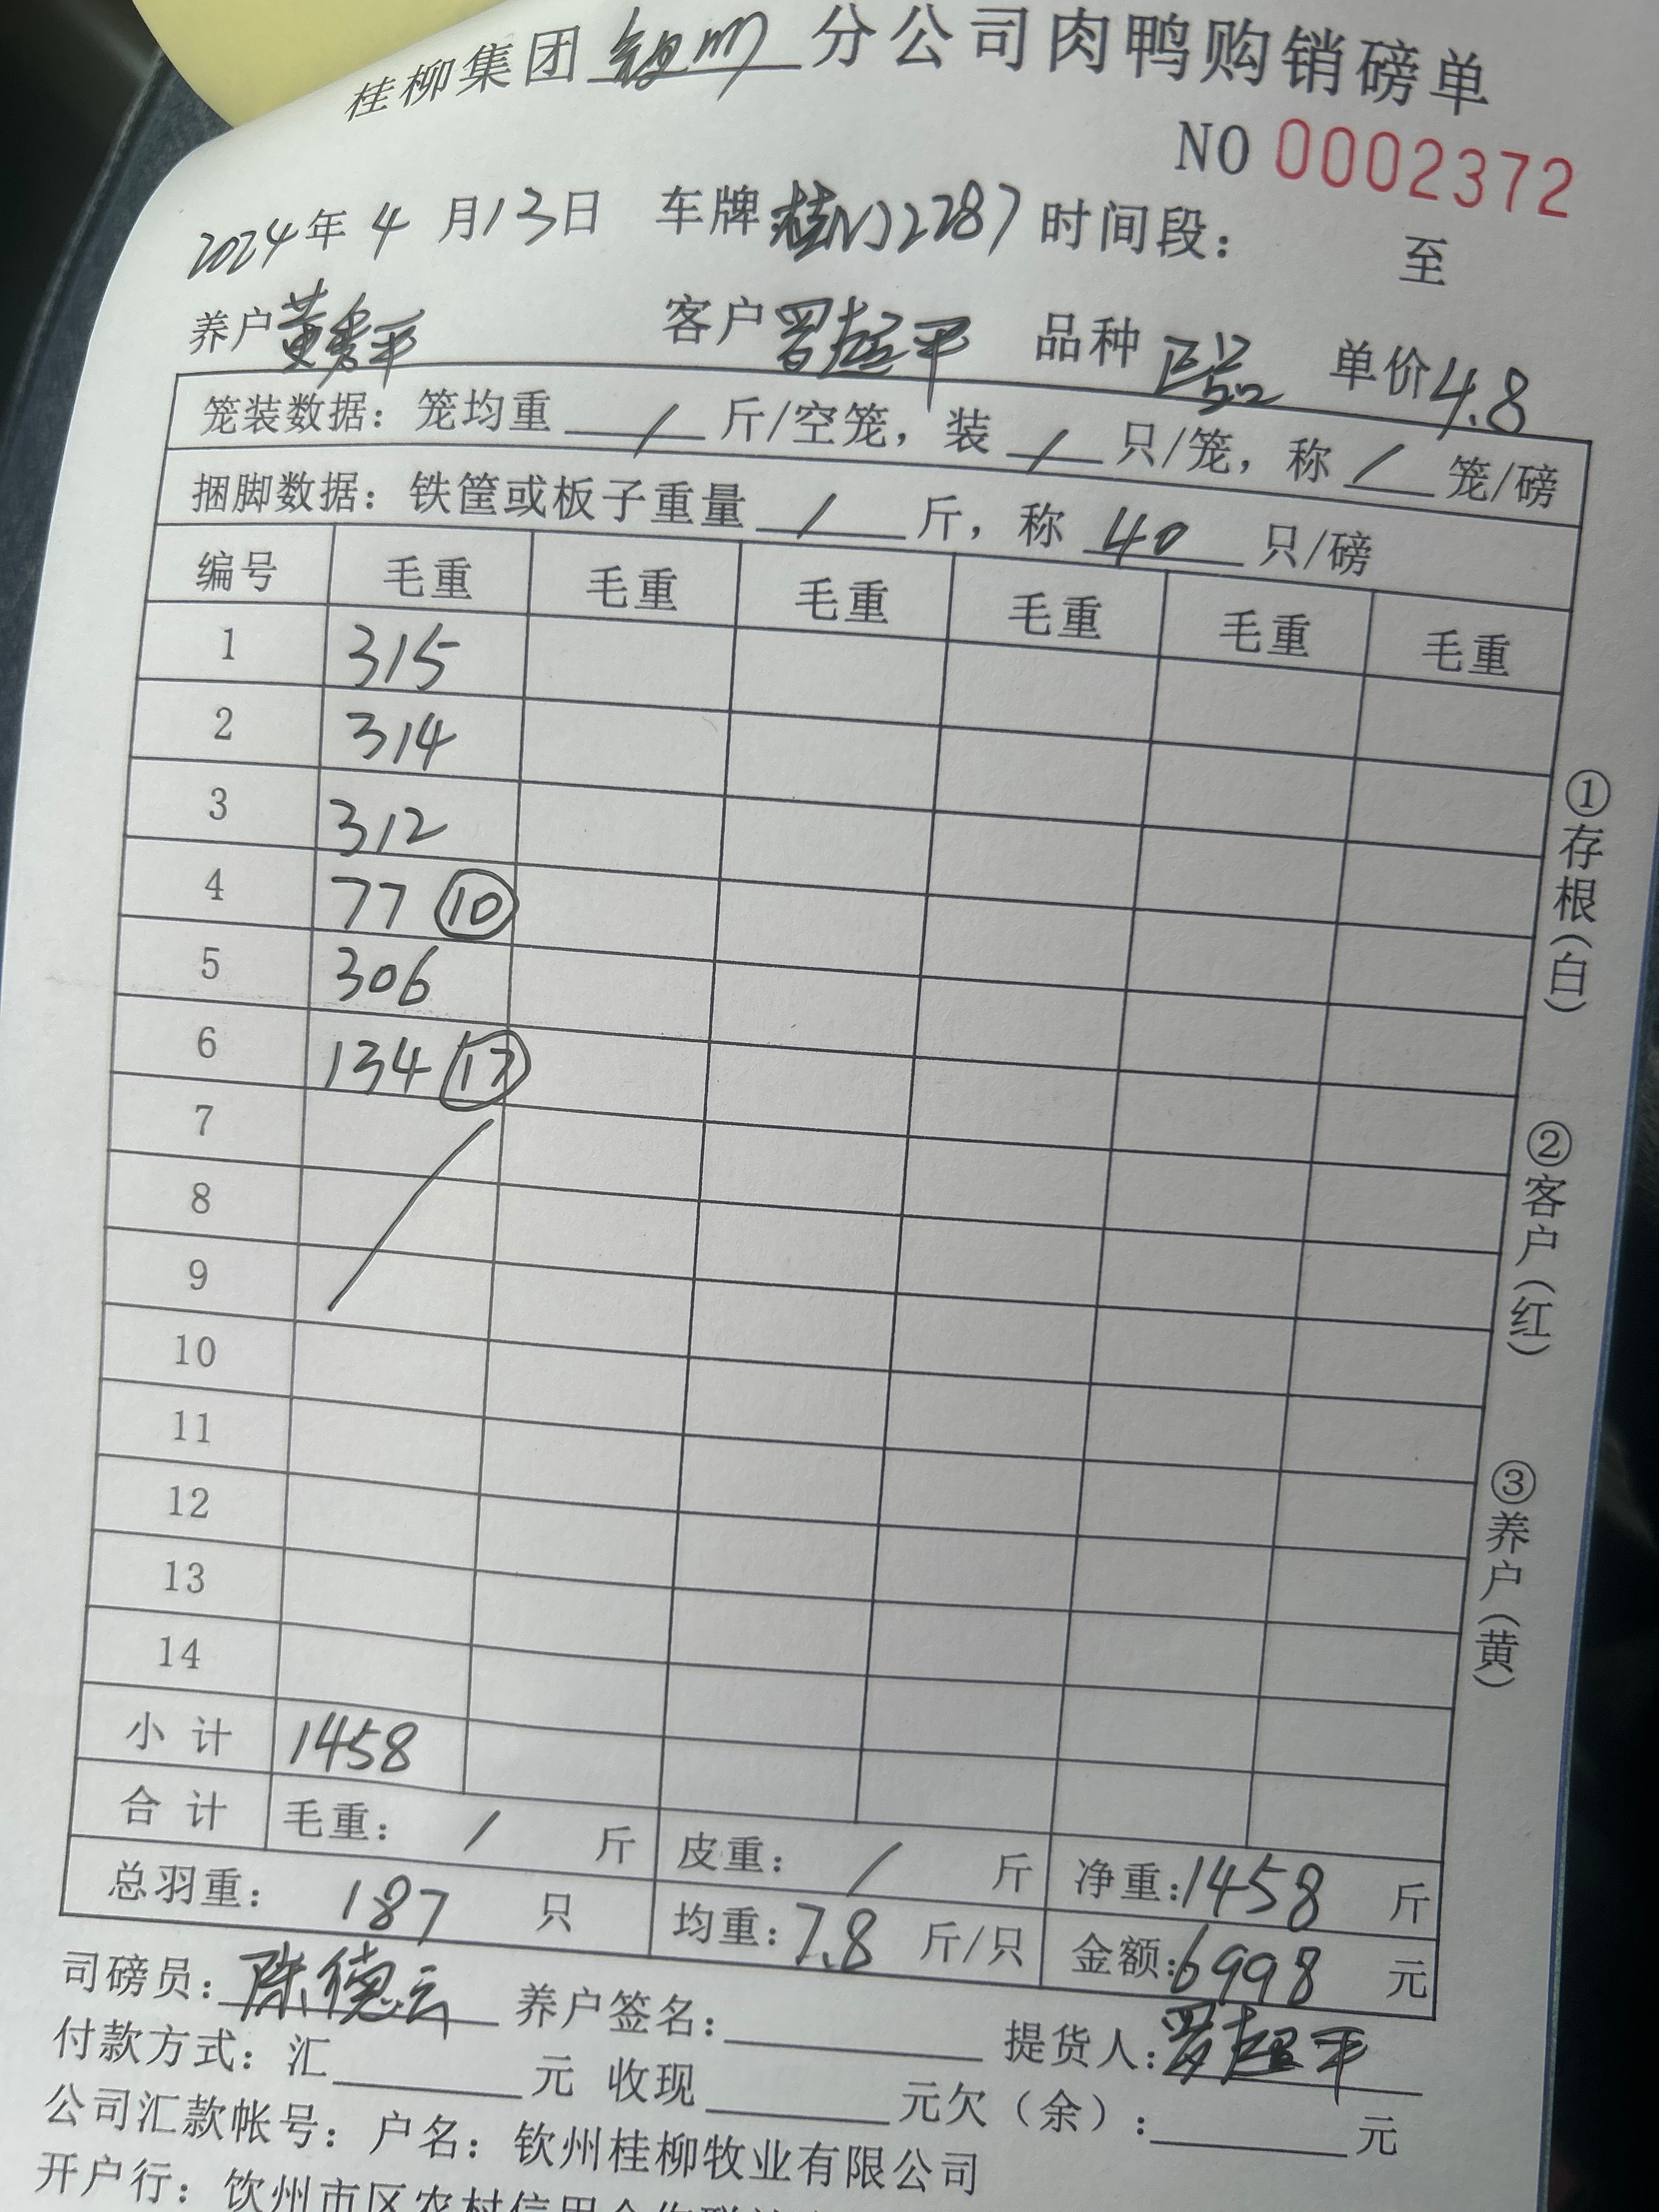 桂柳集团 钦州 分公司肉鸭购销磅单
NO 0002372
2024年 4 月 13日 车牌 桂N J2287 时间段: 至
养户 黄秀平 客户 罗超平 品种 单价 4.8
笼装数据: 笼均重 / 斤/空笼, 装 / 只/笼, 称 / 笼/磅
捆脚数据: 铁筐或板子重量 / 斤, 称 40 只/磅
编号 毛重 毛重 毛重 毛重 毛重 毛重
1 315
2 314
3 312
4 77 ⑩
5 306
6 134 ⑰
7
8
9
10
11
12
13
14
小计 1458
合计 毛重: / 斤 皮重: / 斤 净重: 1458 斤
总羽重: 187 只 均重: 7.8 斤/只 金额: 6998 元
司磅员: 陈德云 养户签名: 提货人: 罗超平
付款方式: 汇 元 收现 元欠(余): 元
公司汇款帐号: 户名: 钦州桂柳牧业有限公司
开户行: 钦州市区农村信用合作联社
①存根(白)
②客户(红)
③养户(黄)